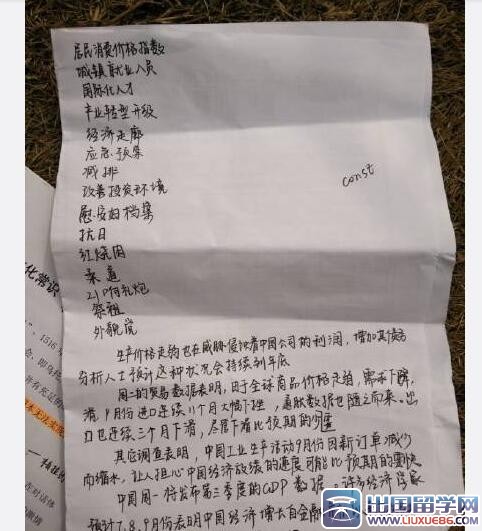 居民消费价格指数
城镇就业人员
国际化人才
产业转型升级
经济走廊
应急预案
减排
改善投资环境
慰安妇档案
抗日
红烧肉
柔道
21响礼炮
祭祖
外貌党
const
生产价格走钩也在威胁侵蚀着中国公司的利润，增加其债务
分析人士预计这种状况会持续到年底
周一的贸易数据表明，因于全球商品价格走钩，需求下降
滑，9月份进口连续11个月大幅下挫，
数据也随之而来。出
口也连续三个月下滑，尽管下滑比预期的少
其它调查表明，中国工业生产活动9月份因新订单减少
而缩水，让人担心中国经济放缓的速度可能比预期的要快
中国周一将发布第三季度的GDP数据。许多经济学家
预计7、8、9月份表明中国经济增长自金融
化常识
1516年
出国留学网
WWW.LIUXUE86.COM